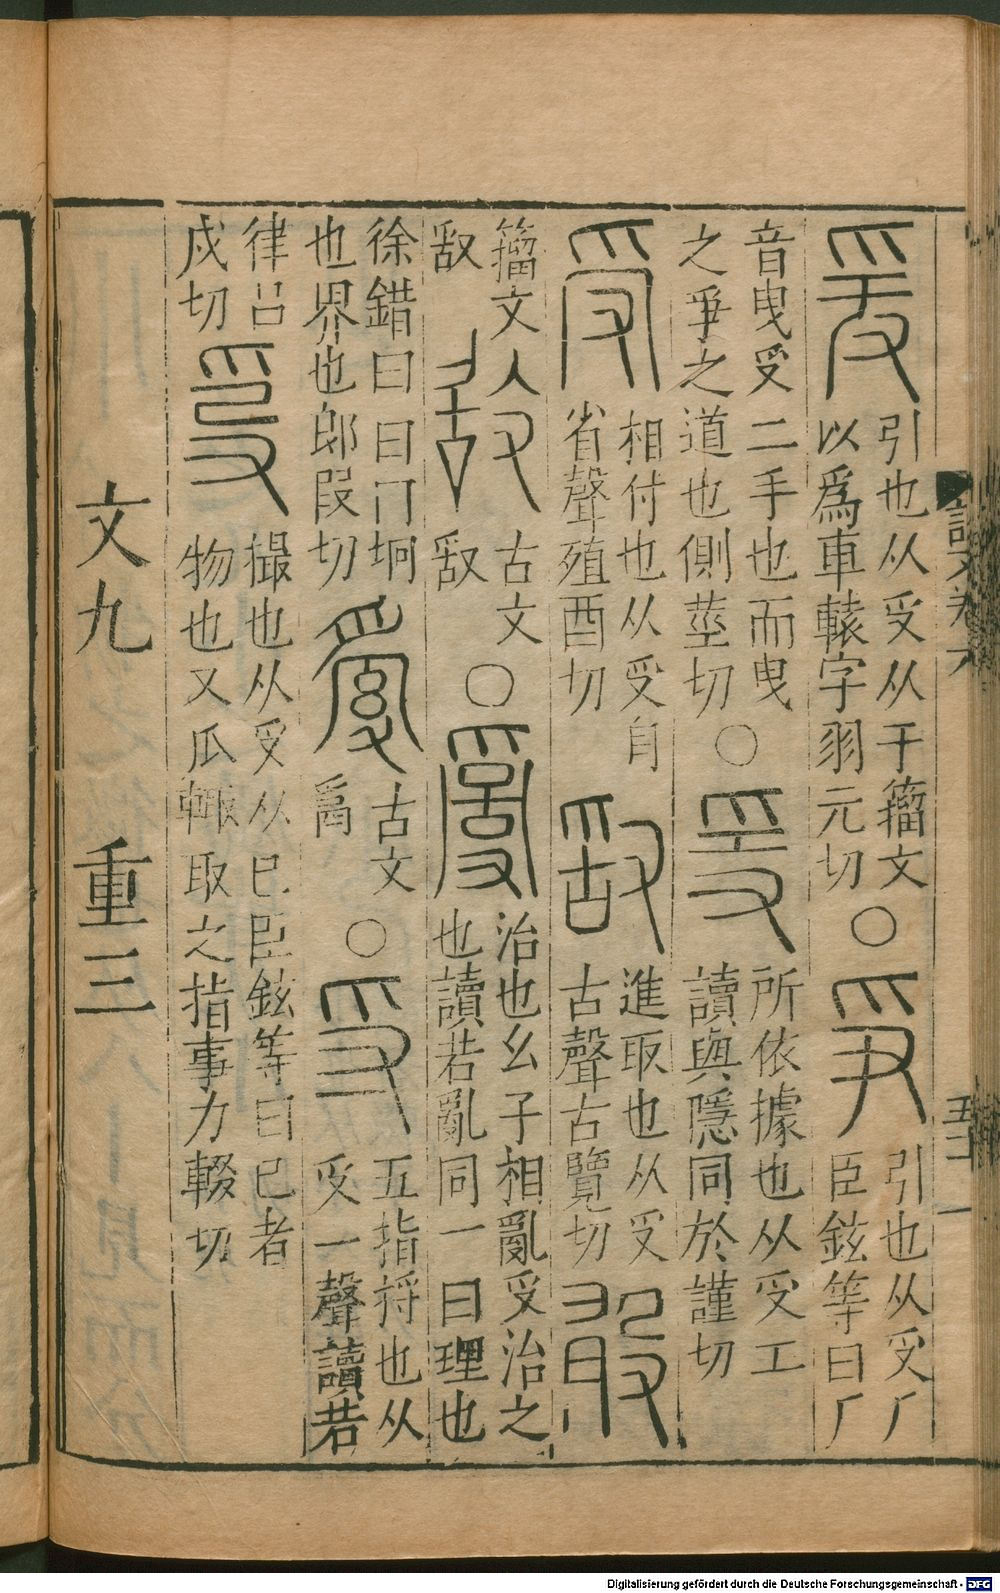 爰
引也从𠬪从于籀文
以爲車轅字羽元切
○
爭
引也从𠬪厂
臣鉉等曰厂
音曳𠬪二手也而曳
之爭之道也側莖切
○
𤔌
所依據也从𠬪工
讀與隱同於謹切
受
相付也从𠬪
省聲殖酉切
𠭖
進取也从𠬪
古聲古覽切
籀文
𠭖
古文
𠭖
○
𤔔
治也幺子相亂𠬪治之
也讀若亂同一曰理也
徐錯曰曰冂坰
也界也郎段切
古文
𤔔
○
寽
五指捋也从
𠬪一聲讀若
律呂
戌切
撮也从𠬪从已臣鉉等曰已者
物也又瓜取之指事力輟切
文九 重三
說文卷六
Digitalisierung gefördert durch die Deutsche Forschungsgemeinschaft - DFG